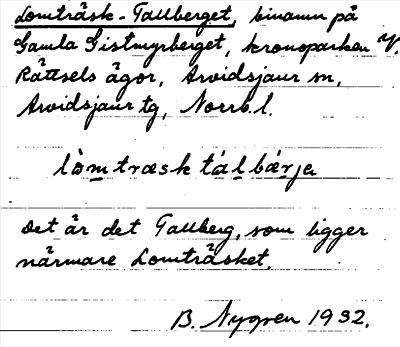 Lomträsk-Tallberget, binamn på
Gamla Gistmyrberget, kronoparken V.
Rättsels ägor, Arvidsjaur sn,
Arvidsjaur tg, Norrb.l.
lòmtræsk tálbǽrje
Det är det Tallberg, som ligger
närmare Lomträsket.
B. Nygren 1932.